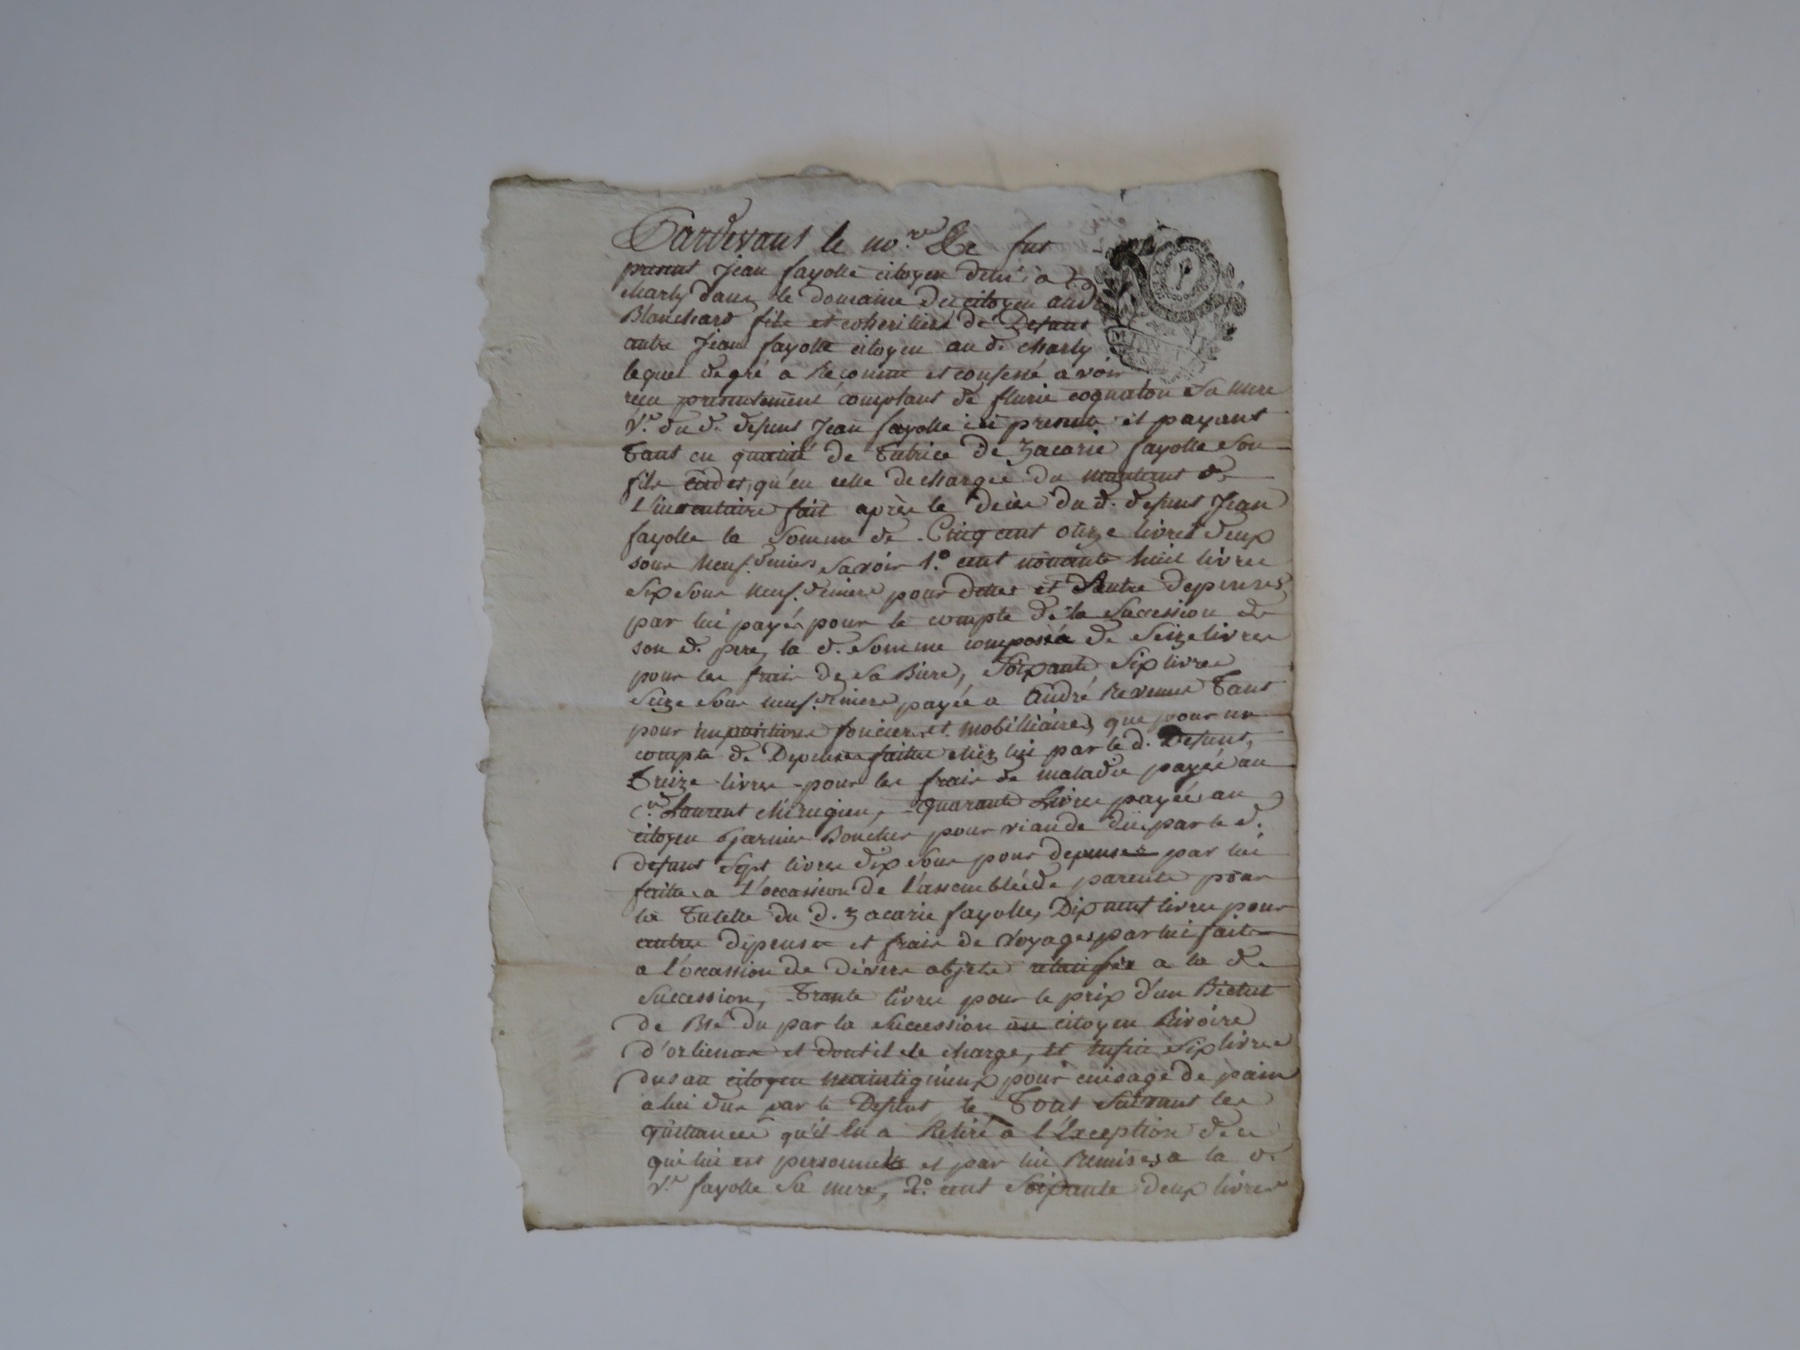 Pardevant le no.re &c fut
present Jean fayolle citoyen demt a
charly dans le domaine du citoyen andré
Blanchard fils et coheritiers de Defunt
autre Jean fayolle citoyen au d. charly
lequel de gré a Reconnu et confessé avoir
reçu presentement comptant de flurie cognaton sa mere
V.e du d. defunt Jean fayolle ici presente et payant
Tant en qualité de Tutrice de zacarie fayolle son
fils cadet, qu'en celle de chargée du montant de
L'inventaire fait après le decès du d. defunt Jean
fayolle la somme de Cinq cent onze livres deux
sous neuf deniers savoir 1.o cent nonante huit livres
six sous neuf deniers pour dettes et d'Autre depenses
par lui payés pour le compte de la Sucession de
son d. pere, la d. somme composée de Seize livres
pour les frais de sa Biere, Soixante Six livres
seize sous neuf deniers payée a André Revenus Tant
pour impositions foncieres et mobilliaires, que pour un
compte de Depenses faittes chez lui par le d. Defunt,
Treize livres pour les frais de maladie payée au
C.n Laurent chirugien, Quarante Livres payée au
citoyen Garnier Boucher pour viande due par le d.
defunt Sept livres dix sous pour depenses par lui
faitte a L'occassion de L'assemblée de parents pour
la Tutelle du d. zacarie fayolle, Dix neuf livres pour
autres dépenses et frais de voyages par lui faits
a l'occassion de divers objets relatifes a la de
Succession, Trante livres pour le prix d'un Bichet
de Blé du par la succession au citoyen Rivoire
d'orlienas et dont il se charge, et enfin six livres
dus au citoyen pour cuisage de pain
a lui dus par le Defunt le Tout suivant les
quittances qu'il en a Retiré a l'Exception de ce
qui lui est personnel et par lui Remises a la de
V.e fayolle sa mere, 2.o cent soixante deux livres